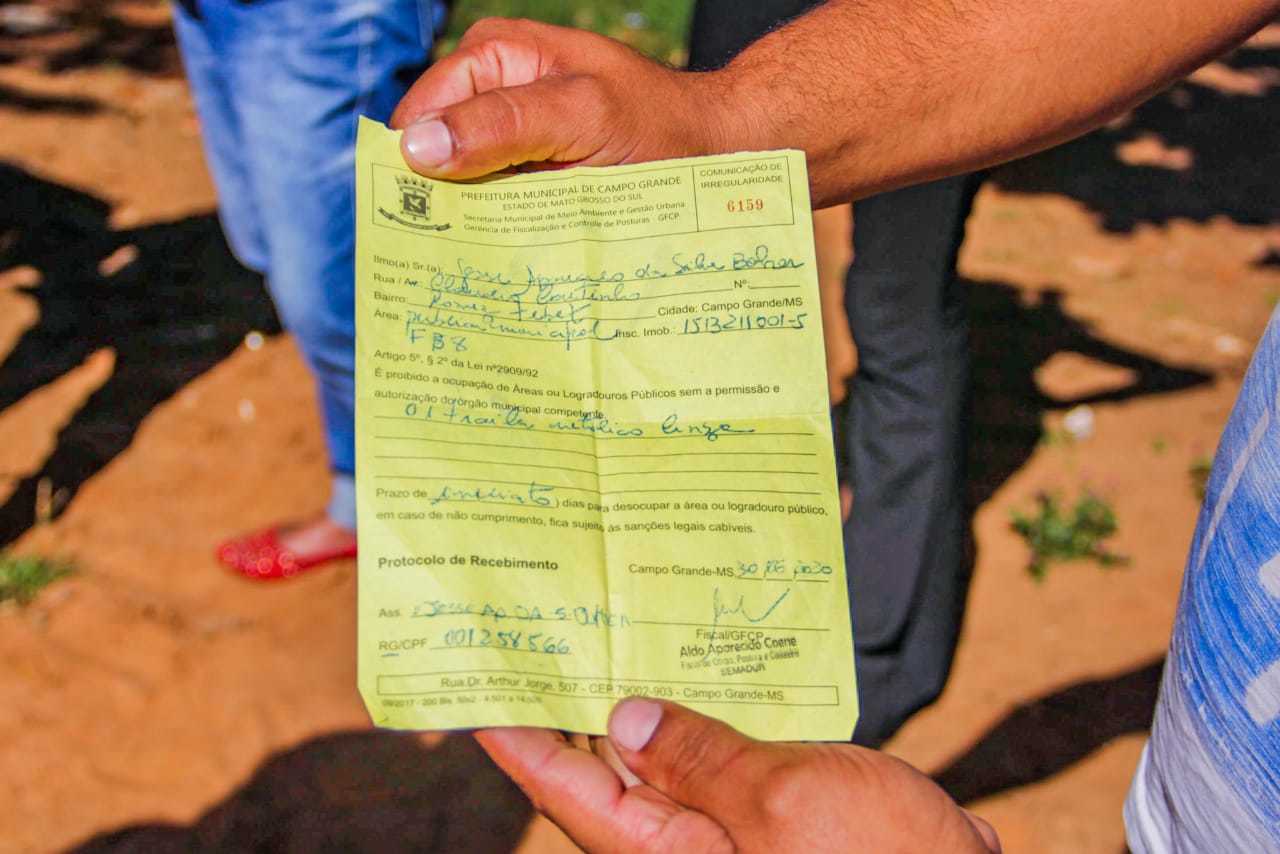 PREFEITURA MUNICIPAL DE CAMPO GRANDE
ESTADO DE MATO GROSSO DO SUL
Secretaria Municipal de Meio Ambiente e Gestão Urbana
Gerência de Fiscalização e Controle de Posturas - GFCP.
COMUNICAÇÃO DE
IRREGULARIDADE
6159
Ilmo(a) Sr.(a) Jesse da Silva
Rua / Av. Coutinho Nº:
Bairro: Cidade: Campo Grande/MS
Área: publica municipal Insc. Imob.: 1513211001-5
FB8
Artigo 5º, § 2º da Lei nº2909/92
É proibido a ocupação de Áreas ou Logradouros Públicos sem a permissão e
autorização do órgão municipal competente.
01 trailer metálico cinza
Prazo de imediato) dias para desocupar a área ou logradouro público,
em caso de não cumprimento, fica sujeito às sanções legais cabíveis.
Protocolo de Recebimento
Campo Grande-MS 30 2020
Ass. Jesse Ap DA S.
RG/CPF 001258566
Fiscal/GFCP
Aldo Aparecido Coene
Fiscal de Obras, Postura e
SEMADUR
Rua Dr. Arthur Jorge, 507 - CEP 79002-903 - Campo Grande-MS
09/2017 - 200 Bls. 50x2 - 4.501 a 14.500